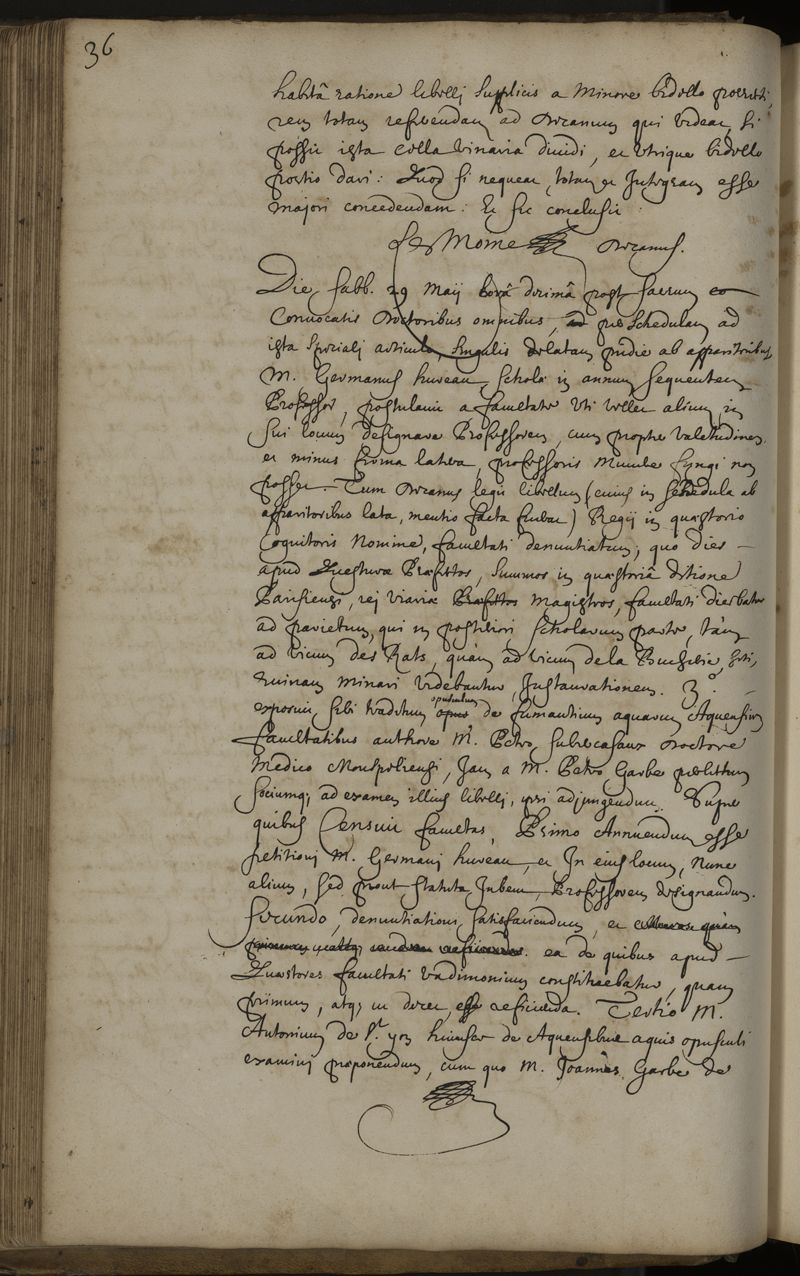 36
habitâ ratione libelli supplicis a Minore bidello porrecti,
rem totam referendam ad Decanum qui videat, si
possit ista cella vinaria dividi, et utrique bidello
portio dari: Quod si nequeat, totam et Integram esse
majori concedendam: Et sic conclusit
Le Moine Decanus.
Die sabb. 29 Maij horâ decimâ post sacrum
Convocatis Doctoribus omnibus, per schedulam ad
ista speciali articulo singulis delatam pridie ab apparitoribus
M. Germanus hureau, scholæ in annum sequentem
Professor, postulavit a facultate uti vellet alium in
sui locum designare Professorem, cum propter valetudinem
et minus firma latera, professoris munere fungi non
posset. Tum Decanus legit libellum (cuius in schedula ab
apparitoribus lata, mentio facta fuerat) Regij in quæstorio
cognitoris Nomine, facultati denuntiatum, quo dies
apud Quæsturæ Præfectos, summos in quæstoriâ ditione
Parisiensi, rei viariæ Præfectos magistros, facultati dicebatur
ad parietum, qui in posteriori scholarum parte, tàm
ad vicum des Rats, quàm ad vicum de la Bucherie, siti,
ruinam minari videbantur, Instaurationem. 3°.
exposuit sibi traditum opus opusculum de fumantium aquarum Aquensium
facultatibus authore M. Petro Subercasaux Doctore
Medico Monspeliensi, Jam a M. Petro Garbe perlectum
sociumq; ad examen illius libelli, ipsi adjungendum. Super
quibus Censuit facultas, Primo Annuendum esse
petitioni M. Germani hureau, et In eius locum, Nunc
alium, sed prout statuta Jubent, Professorem designandum.
Secundo, denuntiationi satisfaciendum, et
ea de quibus apud
Quæstores facultati vadimonium constituebatur, quam
primum, atq; ut decet, esse reficienda. Tertio M.
Antonium de St. yon huiusce de Aquensibus aquis opusculi
examini præponendum, cum quo M. Joannes Garbe de